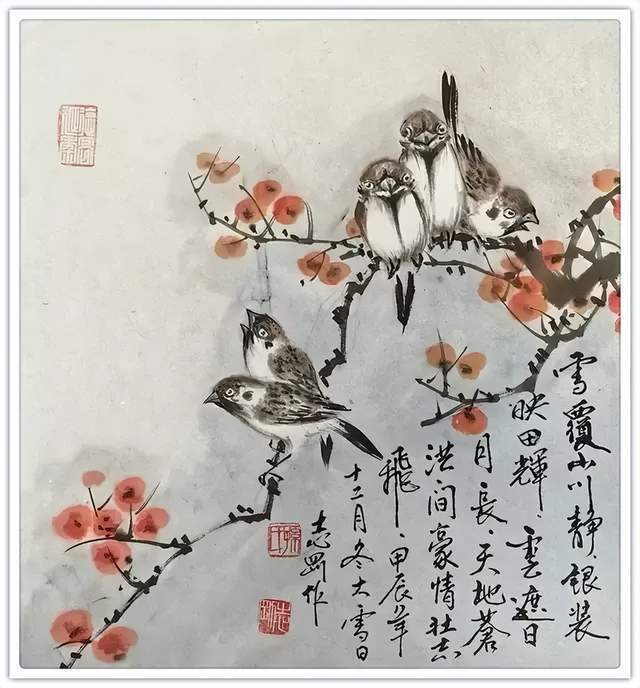 雪覆山川静、银装
映田輝、雲遮日
月長、天地蒼
洪间豪情壮志
飛、甲辰年
十二月冬大雪日
志作